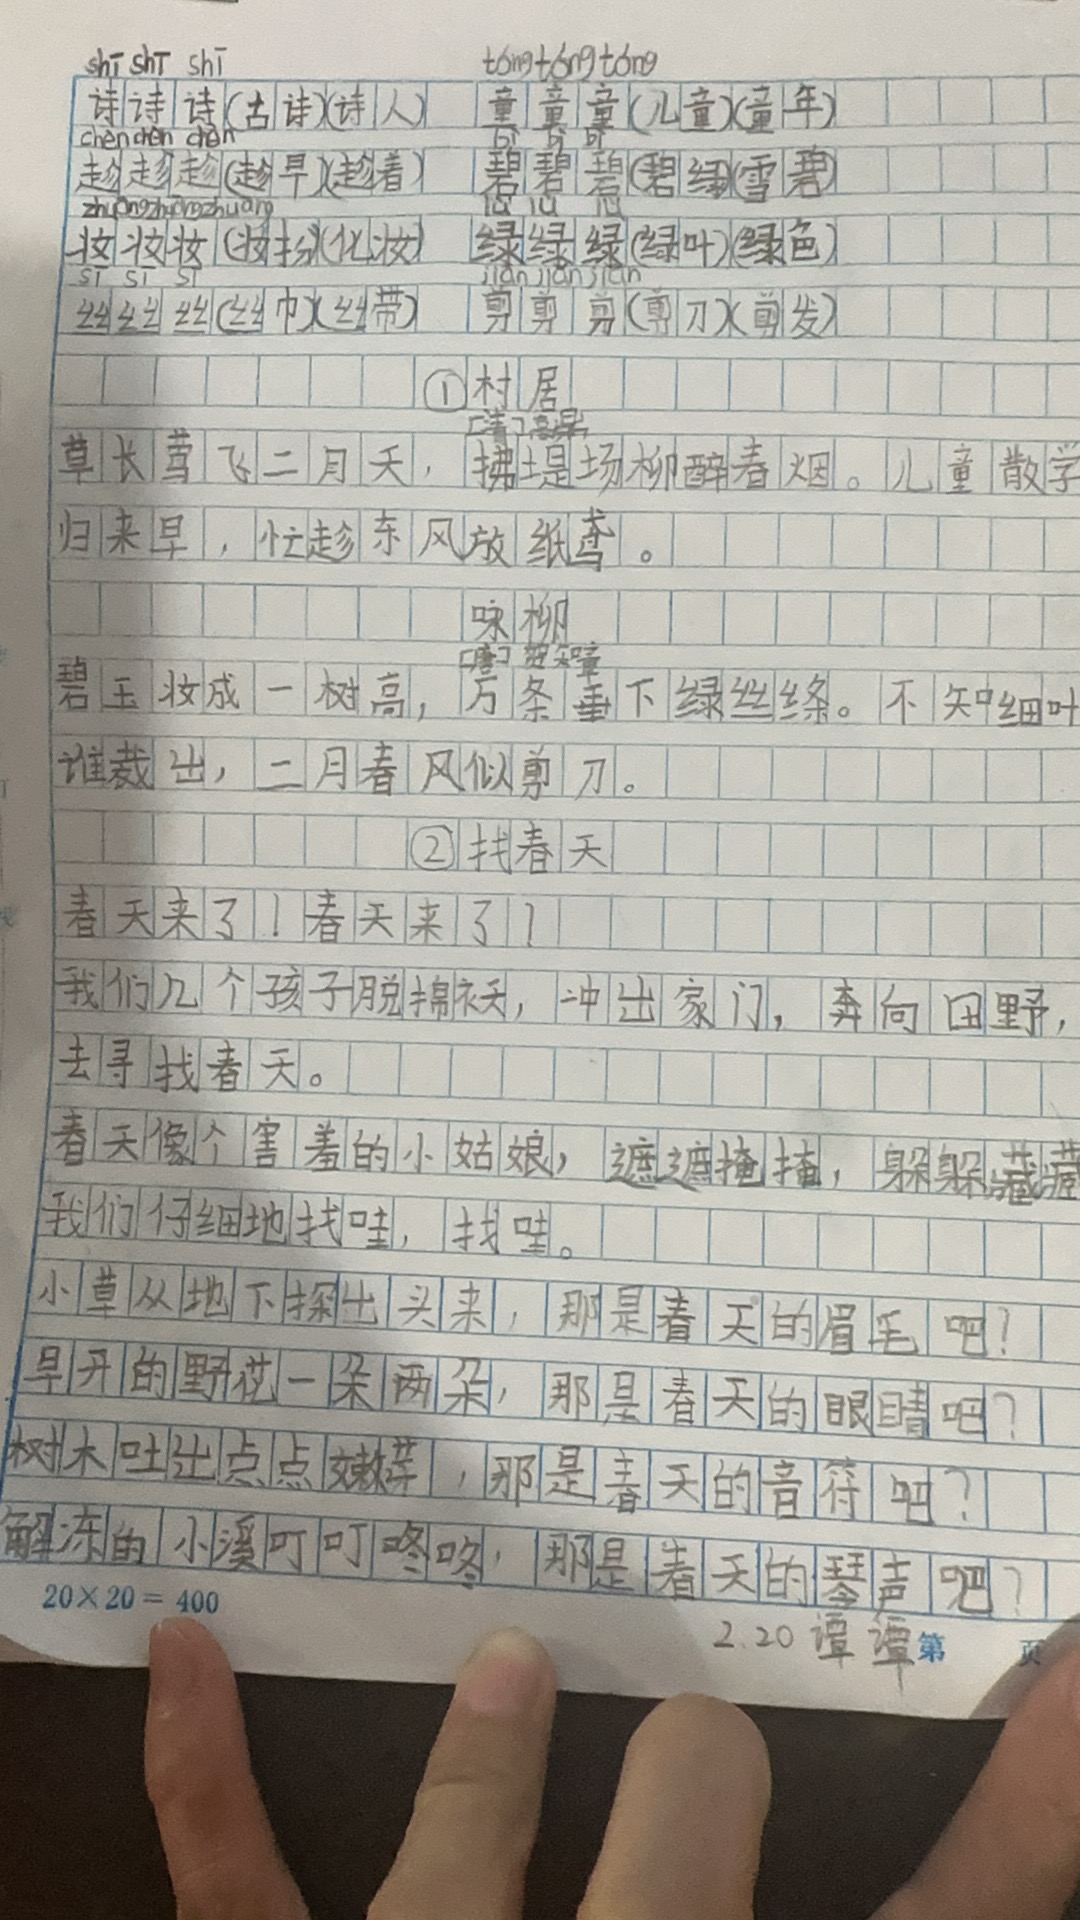 shī shī shī tóng tóng tóng
诗诗诗(古诗)(诗人) 童童童(儿童)(童年)
chèn chèn chèn bì bì bì
趁趁趁(趁早)(趁着) 碧碧碧(碧绿)(雪碧)
zhuāng zhuāng zhuāng lǜ lǜ lǜ
妆妆妆(妆扮)(化妆) 绿绿绿(绿叶)(绿色)
sī sī sī jiǎn jiǎn jiǎn
丝丝丝(丝巾)(丝带) 剪剪剪(剪刀)(剪发)
①村居
[清]高鼎
草长莺飞二月天，拂堤场柳醉春烟。儿童散学
归来早，忙趁东风放纸鸢。
咏柳
[唐]贺知章
碧玉妆成一树高，万条垂下绿丝绦。不知细叶
谁裁出，二月春风似剪刀。
②找春天
春天来了！春天来了！
我们几个孩子脱棉袄，冲出家门，奔向田野，
去寻找春天。
春天像个害羞的小姑娘，遮遮掩掩，躲躲藏藏
我们仔细地找哇，找哇。
小草从地下探出头来，那是春天的眉毛吧？
早开的野花一朵两朵，那是春天的眼睛吧？
树木吐出点点嫩芽，那是春天的音符吧？
解冻的小溪叮叮咚咚，那是春天的琴声吧？
20×20=400
2.20 谭谭 第 页